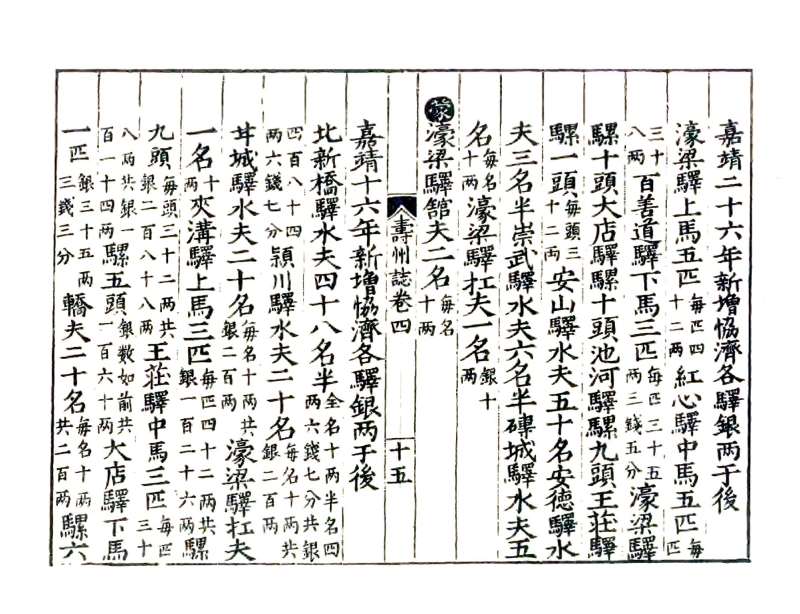 嘉靖二十六年新增恊濟各驛銀两于後
濠梁驛上馬五匹每匹四十二两紅心驛中馬五匹每匹
三十八两百善道驛下馬三匹每匹三十五两三錢五分濠梁驛
騾十頭大店驛騾十頭池河驛騾九頭王莊驛
騾一頭每頭三十二两安山驛水夫五十名安德驛水
夫三名半崇武驛水夫六名半磚城驛水夫五
名每名十两濠梁驛扛夫一名銀十两
濠梁驛舘夫二名每名十两
壽州誌卷四 十五
嘉靖十六年新增恊濟各驛銀两于後
北新橋驛水夫四十八名半全名十两半名四两六錢七分共銀
四百八十四两六錢七分潁川驛水夫二十名每名十两共銀二百两
甘城驛水夫二十名每名十两共銀二百两濠梁驛扛夫
一名十两夾溝驛上馬三匹每匹四十二两共銀一百二十六两騾
九頭每頭三十二两共銀二百八十八两王莊驛中馬三匹每匹三十
八两共銀一百一十四两騾五頭銀数如前共一百六十两大店驛下馬
一匹銀三十五两三錢三分轎夫二十名每名十两共二百两騾六